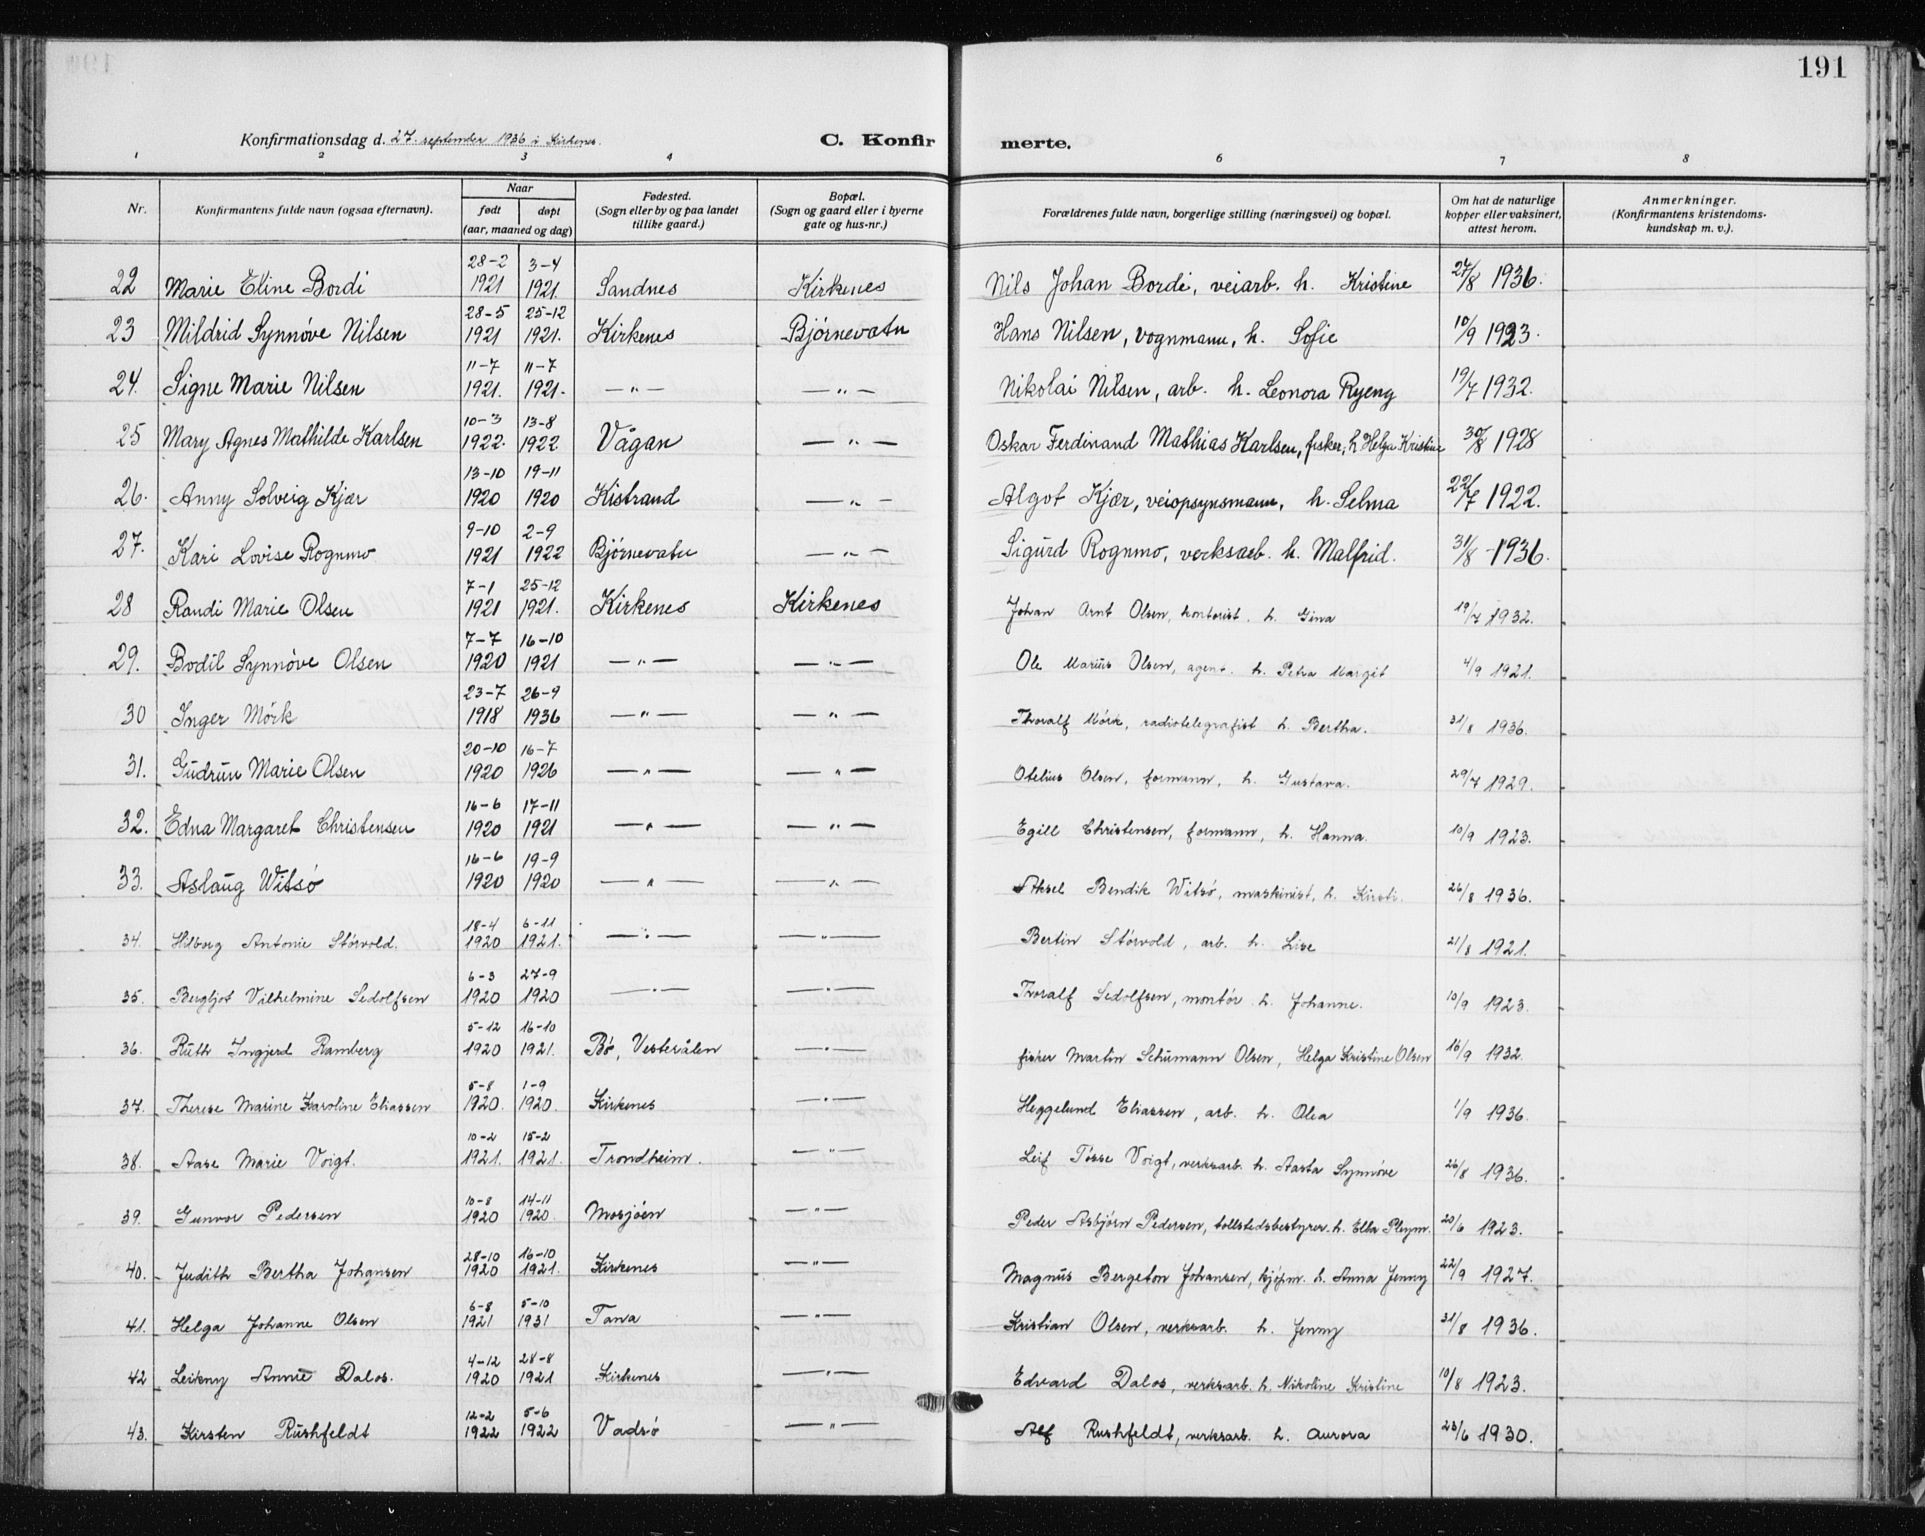 191
Konfirmationsdag d. 27. september 1936 i Kirkenes.
C. Konfirmerte.
1 2 3 4 6 7 8
Nr. Konfirmantens fulde navn (ogsaa efternavn). Naar født døpt (aar, maaned og dag) Fødested. (Sogn eller by og paa landet tillike gaard.) Bopæl. (Sogn og gaard eller i byerne gate og hus-nr.) Forældrenes fulde navn, borgerlige stilling (næringsvei) og bopæl. Om hat de naturlige kopper eller vaksinert, attest herom. Anmerkninger. (Konfirmantens kristendoms-kundskap m. v.).
22 Marie Eline Bordi 28-2 1921 3-4 1921. Sandnes Kirkenes Nils Johan Bordi, veiarb. h. Kristine 27/8 1936.
23 Mildrid Synnøve Nilsen 28-5 1921 25-12 1921. Kirkenes Bjørnevatn Hans Nilsen, vognmann, h. Sofie 10/9 1923.
24. Signe Marie Nilsen 11-7 1921. 11-7 1921. —"— —"— Nikolai Nilsen, arb. h. Leonora Ryeng 19/7 1932.
25 Mary Agnes Mathilde Karlsen 10-3 1922. 13-8 1922 Vågan —"— Oskar Ferdinand Mathias Karlsen, fisker, h Helga Kristine 30/8 1928
26. Anny Solveig Kjær 13-10 1920 19-11 1920 Kistrand —"— Algot Kjær, veiopsynsmann, h. Selma 22/7 1922.
27. Kari Lovise Rognmo 9-10 1921 2-9 1922 Bjørnevatn —"— Sigurd Rognmo, verksarb. h. Malfrid. 31/8 -1936.
28 Randi Marie Olsen 7-1 1921 25-12 1921. Kirkenes Kirkenes Johan Arnt Olsen, kontorist. h. Gina 19/7 1932.
29. Bodil Synnøve Olsen 7-7 1920 16-10 1921 —"— —"— Ole Marius Olsen, agent. h. Petra Margit 4/9 1921.
30 Inger Mörk 23-7 1918 26-9 1936 —"— —"— Thoralf Mörk, radiotelegrafist h. Bertha. 31/8 1936.
31. Gudrun Marie Olsen 20-10 1920 16-7 1926 —"— —"— Otelius Olsen, formann, h. Gustava. 29/7 1929.
32. Edna Margaret Christensen 16-6 1920 17-11 1921 —"— —"— Egill Christensen, formann, h. Hanna. 10/9 1923.
33. Aslaug Witsø 16-6 1920 19-9 1920 —"— —"— Aksel Bendik Witsø, maskinist, h. Kirsti. 26/8 1936.
34. Hilborg Antonie Störvold. 18-4 1920 6-11 1921. —"— —"— Bertin Störvold, arb. h. Lise 21/8 1921.
35. Bergljot Vilhelmine Sedolfsen 6-3 1920 27-9 1920 —"— —"— Thoralf Sedolfsen, montör h. Johanne. 10/9 1923.
36. Ruth Ingjerd Ramberg 5-12 1920 16-10 1921. Bö, Vesterålen —"— fisker Martin Schumann Olsen, Helga Kristine Olsen 16/9 1932.
37. Therese Marine Karoline Eliassen 5-8 1920. 1-9 1920. Kirkenes —"— Heggelund Eliassen, arb. h. Olea 1/9 1936.
38. Aase Marie Voigt. 10-2 1921. 15-2 1921. Trondheim. —"— Leif Tösse Voigt, verksarb. h. Aasta Synnöve 26/8 1936.
39. Gunvor Pedersen 10-8 1920 14-11 1920. Mosjöen —"— Peder Asbjörn Pedersen, tollstedsbestyrer. h. Ella Pleym. 20/6 1923.
40. Judith Bertha Johansen 28-10 1920 16-10 1921. Kirkenes —"— Magnus Bergeton Johansen, kjöpm. h. Anna Jenny 22/9 1927.
41. Helga Johanne Olsen 6-8 1921 5-10 1931 Tana —"— Kristian Olsen, verksarb. h. Jenny 31/8 1936.
42 Leikny Annie Dalos. 4-12 1920 28-8 1921 Kirkenes —"— Edvard Dalos, verksarb. h. Nikoline Kristine 10/8 1923.
43. Kirsten Rushfeldt 12-2 1922 5-6 1922 Vadsö —"— Alf Rushfeldt, verksarb. h. Aurora 23/6 1930.